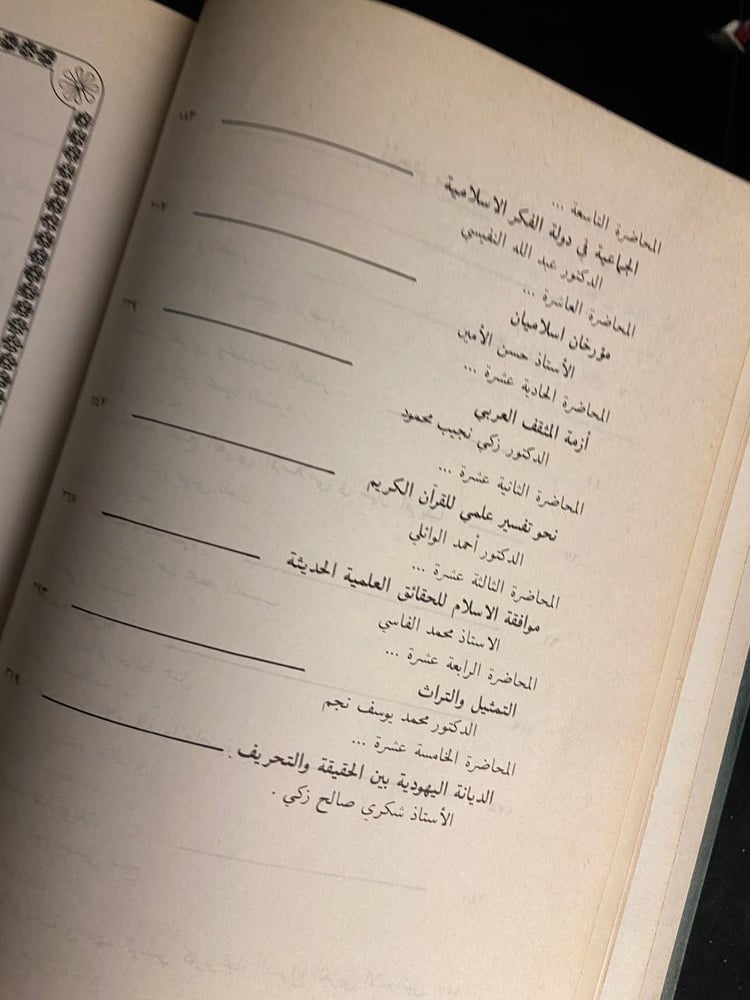 المحاضرة التاسعة ...
الجماعية في دولة الفكر الاسلامية
الدكتور عبد الله النفيسي
المحاضرة العاشرة ...
مؤرخان اسلاميان
الأستاذ حسن الأمين
المحاضرة الحادية عشرة ...
أزمة المثقف العربي
الدكتور زكي نجيب محمود
المحاضرة الثانية عشرة ...
نحو تفسير علمي للقرآن الكريم
الدكتور أحمد الوائلي
المحاضرة الثالثة عشرة ...
موافقة الاسلام للحقائق العلمية الحديثة
الاستاذ محمد الفاسي
المحاضرة الرابعة عشرة ...
التمثيل والتراث
الدكتور محمد يوسف نجم
المحاضرة الخامسة عشرة ...
الديانة اليهودية بين الحقيقة والتحريف .
الأستاذ شكري صالح زكي .